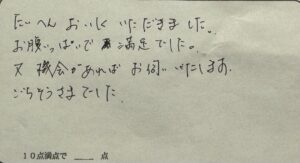 たいへん おいしく いただきました。
お腹いっぱいで 満足でした。
又 機会があれば お伺いいたします。
ごちそうさまでした
10点満点で ____ 点